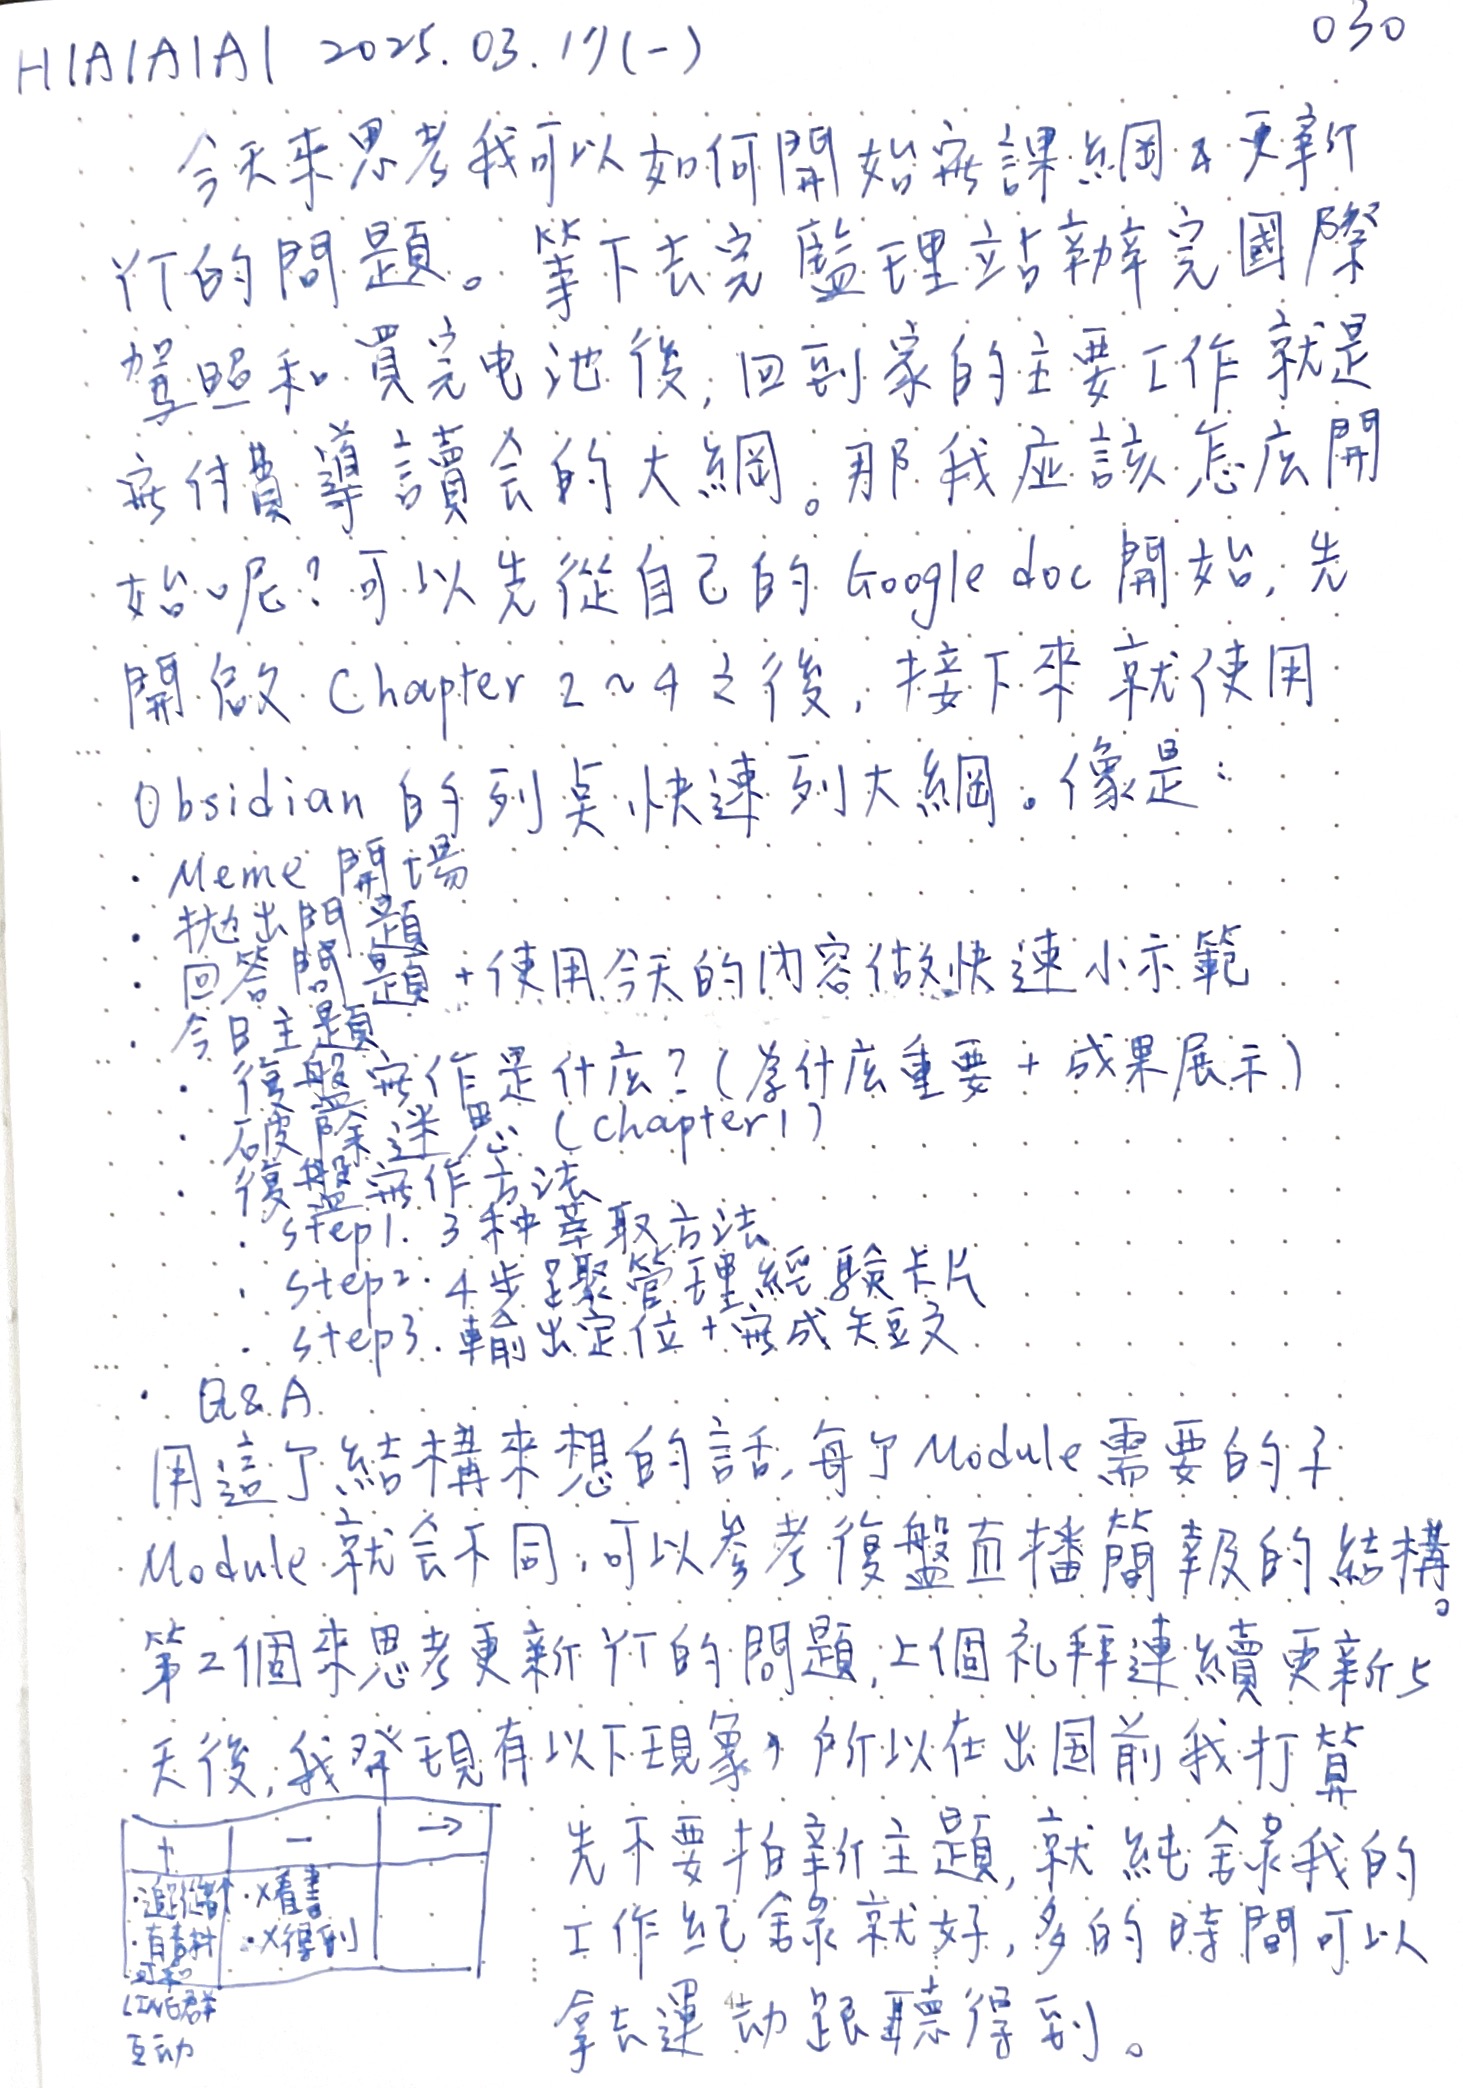 H|A|A|A| 2025.03.17(一)
030
今天來思考我可以如何開始寫課綱 & 更新
YT的問題。等下去完監理站辦完國際
駕照和買完电池後,回到家的主要工作就是
寫付費導讀会的大綱。那我应該怎么開
始呢?可以先從自己的 Google doc 開始,先
開啟 Chapter 2~4 之後,接下來就使用
Obsidian 的列點快速列大綱。像是:
· Meme 開場
· 拋出問題
· 回答問題 + 使用今天的內容做快速小示範
· 今日主題
· 復盤寫作是什么?(為什么重要 + 成果展示)
· 破除迷思 (Chapter 1)
· 復盤寫作方法
· step1. 3种萃取方法
· step2. 4步驟管理經驗卡片
· step3. 輸出定位 + 寫成短文
· Q&A
用這个結構來想的話,每个 Module 需要的子
Module 就会不同,可以參考復盤直播簡報的結構。
第2個來思考更新YT的問題,上個礼拜連續更新5
天後,我發現有以下現象,所以在出国前我打算
+ | − | →
先不要拍新主題,就純錄我的
·追蹤者↑ ·X看書
工作紀錄就好,多的時間可以
·有素材 ·X得到
可和
LINE群
互动
拿去運动跟聽得到。